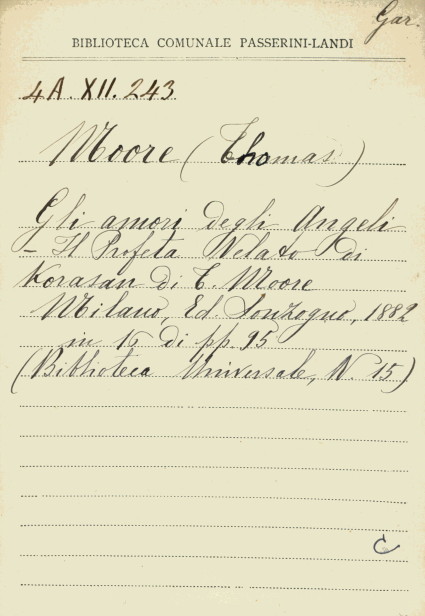 Gar.
BIBLIOTECA COMUNALE PASSERINI-LANDI
4A. XII. 243
Moore (Thomas)
Gli amori degli Angeli
- Il Profeta Velato di
Korasan di T. Moore
Milano, Ed. Sonzogno, 1882
in 16 di pp. 95
(Biblioteca Universale, N. 15)
C